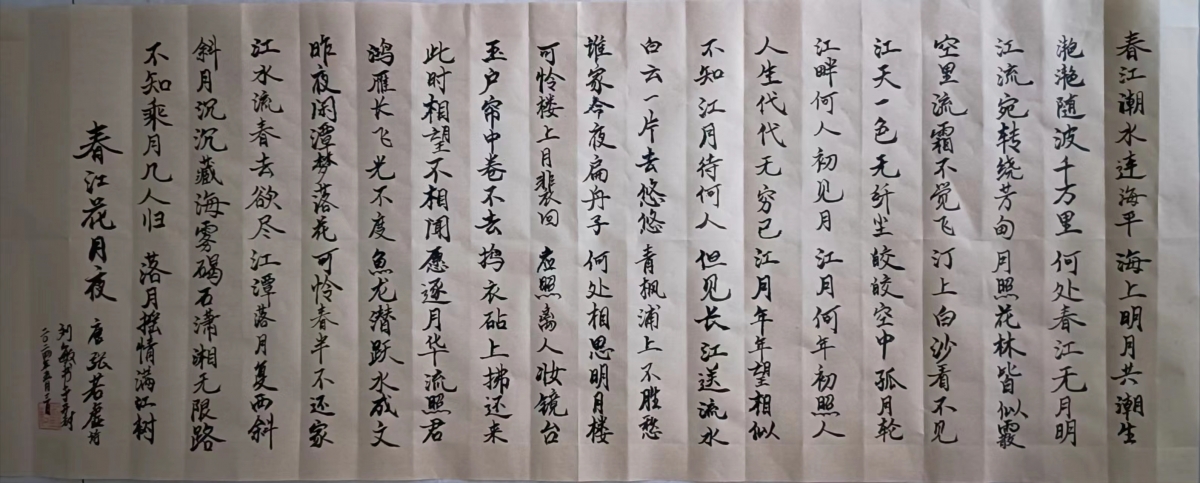 春江潮水连海平 海上明月共潮生
滟滟随波千万里 何处春江无月明
江流宛转绕芳甸 月照花林皆似霰
空里流霜不觉飞 汀上白沙看不见
江天一色无纤尘 皎皎空中孤月轮
江畔何人初见月 江月何年初照人
人生代代无穷已 江月年年望相似
不知江月待何人 但见长江送流水
白云一片去悠悠 青枫浦上不胜愁
谁家今夜扁舟子 何处相思明月楼
可怜楼上月裴回 应照离人妆镜台
玉户帘中卷不去 捣衣砧上拂还来
此时相望不相闻 愿逐月华流照君
鸿雁长飞光不度 鱼龙潜跃水成文
昨夜闲潭梦落花 可怜春半不还家
江水流春去欲尽 江潭落月复西斜
斜月沉沉藏海雾 碣石潇湘无限路
不知乘月几人归 落月摇情满江树
春江花月夜 唐张若虚诗
刘敏书于开封
二〇二四年五月二日